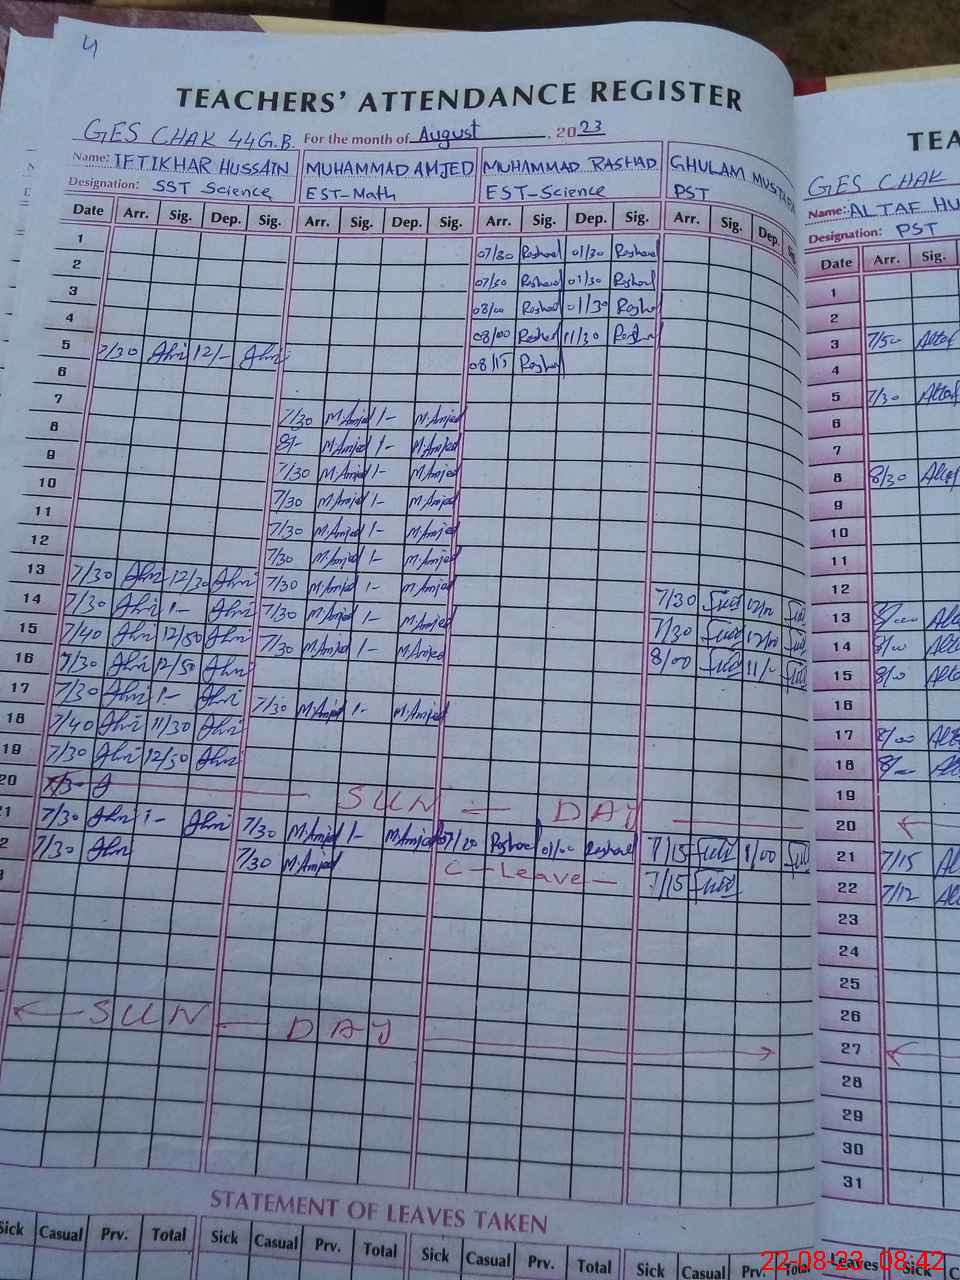 4
TEACHERS' ATTENDANCE REGISTER
GES CHAK 44G.B. For the month of August, 2023
Name: IFTIKHAR HUSSAIN MUHAMMAD AMJED MUHAMMAD RASHAD GHULAM MUSTAFA
Designation: SST Science EST-Math EST-Science PST
Date Arr. Sig. Dep. Sig. Arr. Sig. Dep. Sig. Arr. Sig. Dep. Sig. Arr. Sig. Dep.
1 07/30 Rashad 01/30 Rashad
2 07/50 Rashad 01/30 Rashad
3 08/00 Rashad 01/30 Rashad
4 08/00 Rashad 11/30 Rashad
5 7/30 12/- 08/15 Rashad
6
7
8 7/30 M.Amjed 1- M.Amjed
9 8/- M.Amjed 1- M.Amjed
10 7/30 M.Amjed 1- M.Amjed
11 7/30 M.Amjed 1- M.Amjed
12 7/30 M.Amjed 1- M.Amjed
7/30 M.Amjed 1- M.Amjed
13 7/30 12/30 7/30 M.Amjed 1- M.Amjed 7/30 12/00
14 7/30 1- 7/30 M.Amjed 1- M.Amjed 7/30 12/00
15 7/40 12/50 7/30 M.Amjed 1- M.Amjed 8/00 11/-
16 7/30 12/50
17 7/30 1- 7/30 M.Amjed 1- M.Amjed
18 7/40 11/30
19 7/30 12/50
20 SUN = DAY
1 7/30 1- 7/30 M.Amjed 1- M.Amjed 07/20 Rashad 01/00 Rashad 7/15 1/00
2 7/30 7/30 M.Amjed C-Leave- 7/15
SUN - DAY
STATEMENT OF LEAVES TAKEN
Sick Casual Prv. Total Sick Casual Prv. Total Sick Casual Prv. Total Sick Casual Prv. Total
TEA
GES CHAK
Name: ALTAF HU
Designation: PST
Date Arr. Sig.
1
2
3 7/50 Altaf
4
5 7/30 Altaf
6
7
8 8/30 Altaf
9
10
11
12
13 8/00 Alta
14 8/00 Alta
15 8/00 Alta
16
17 8/00 Alta
18 8/00 Alta
19
20
21 7/15 Al
22 7/12 Al
23
24
25
26
27
28
29
30
31
Leaves Sick C
22-08-23 08:42